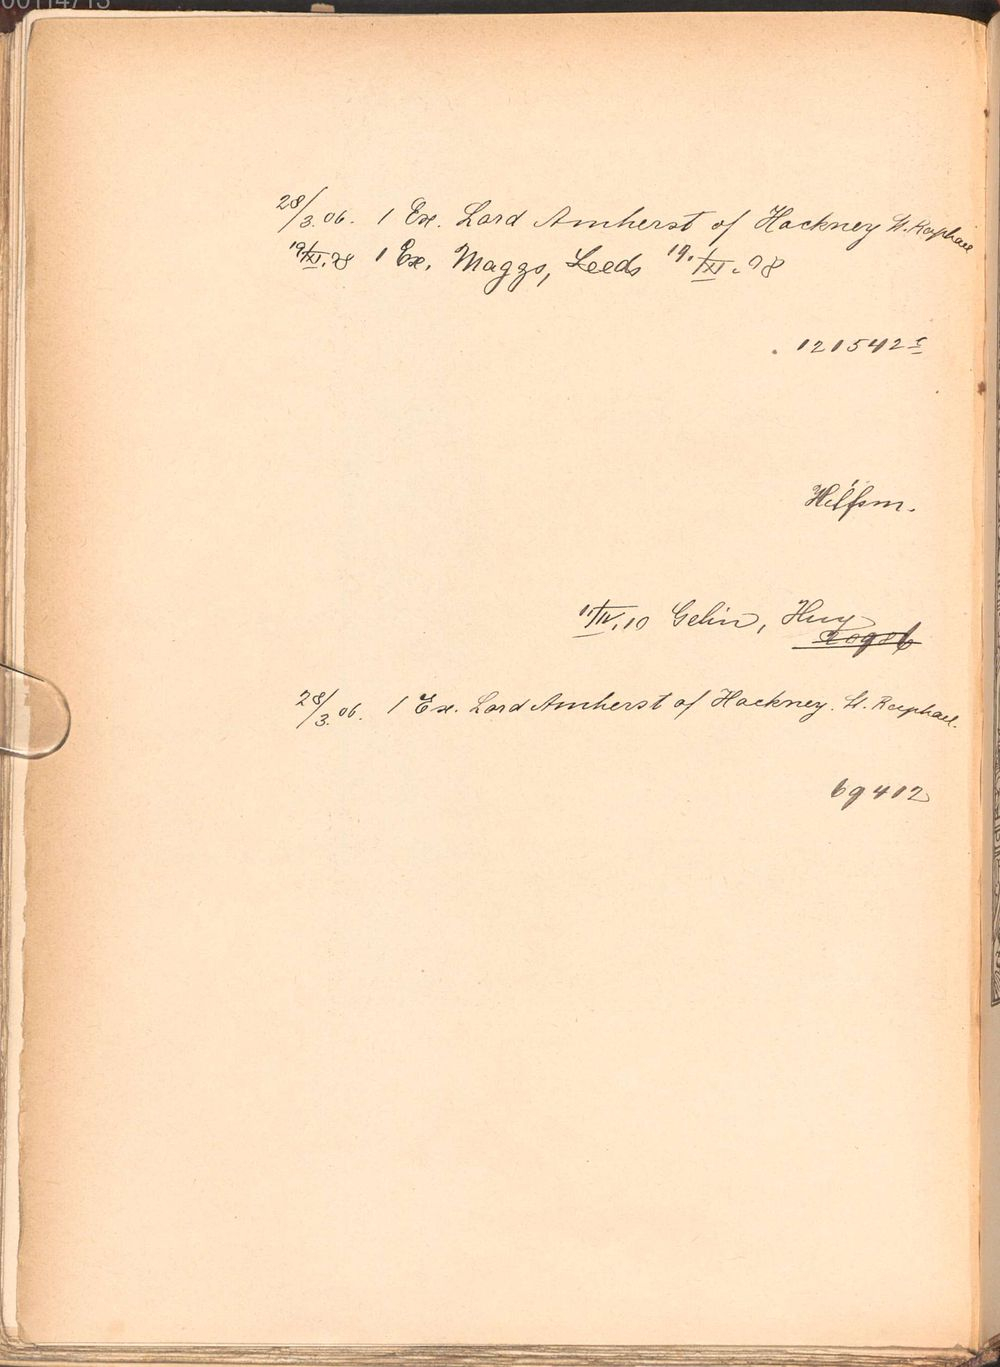 00114713
28/3.06. 1 Ex. Lord Amherst of Hackney St. Raphael
19/XI.98 1 Ex. Maggs, Leeds 19./XI.98
121542
Hilfsm.
11/IV.10 Gelin, Huy
28/3.06. 1 Ex. Lord Amherst of Hackney. St. Raphael.
69412